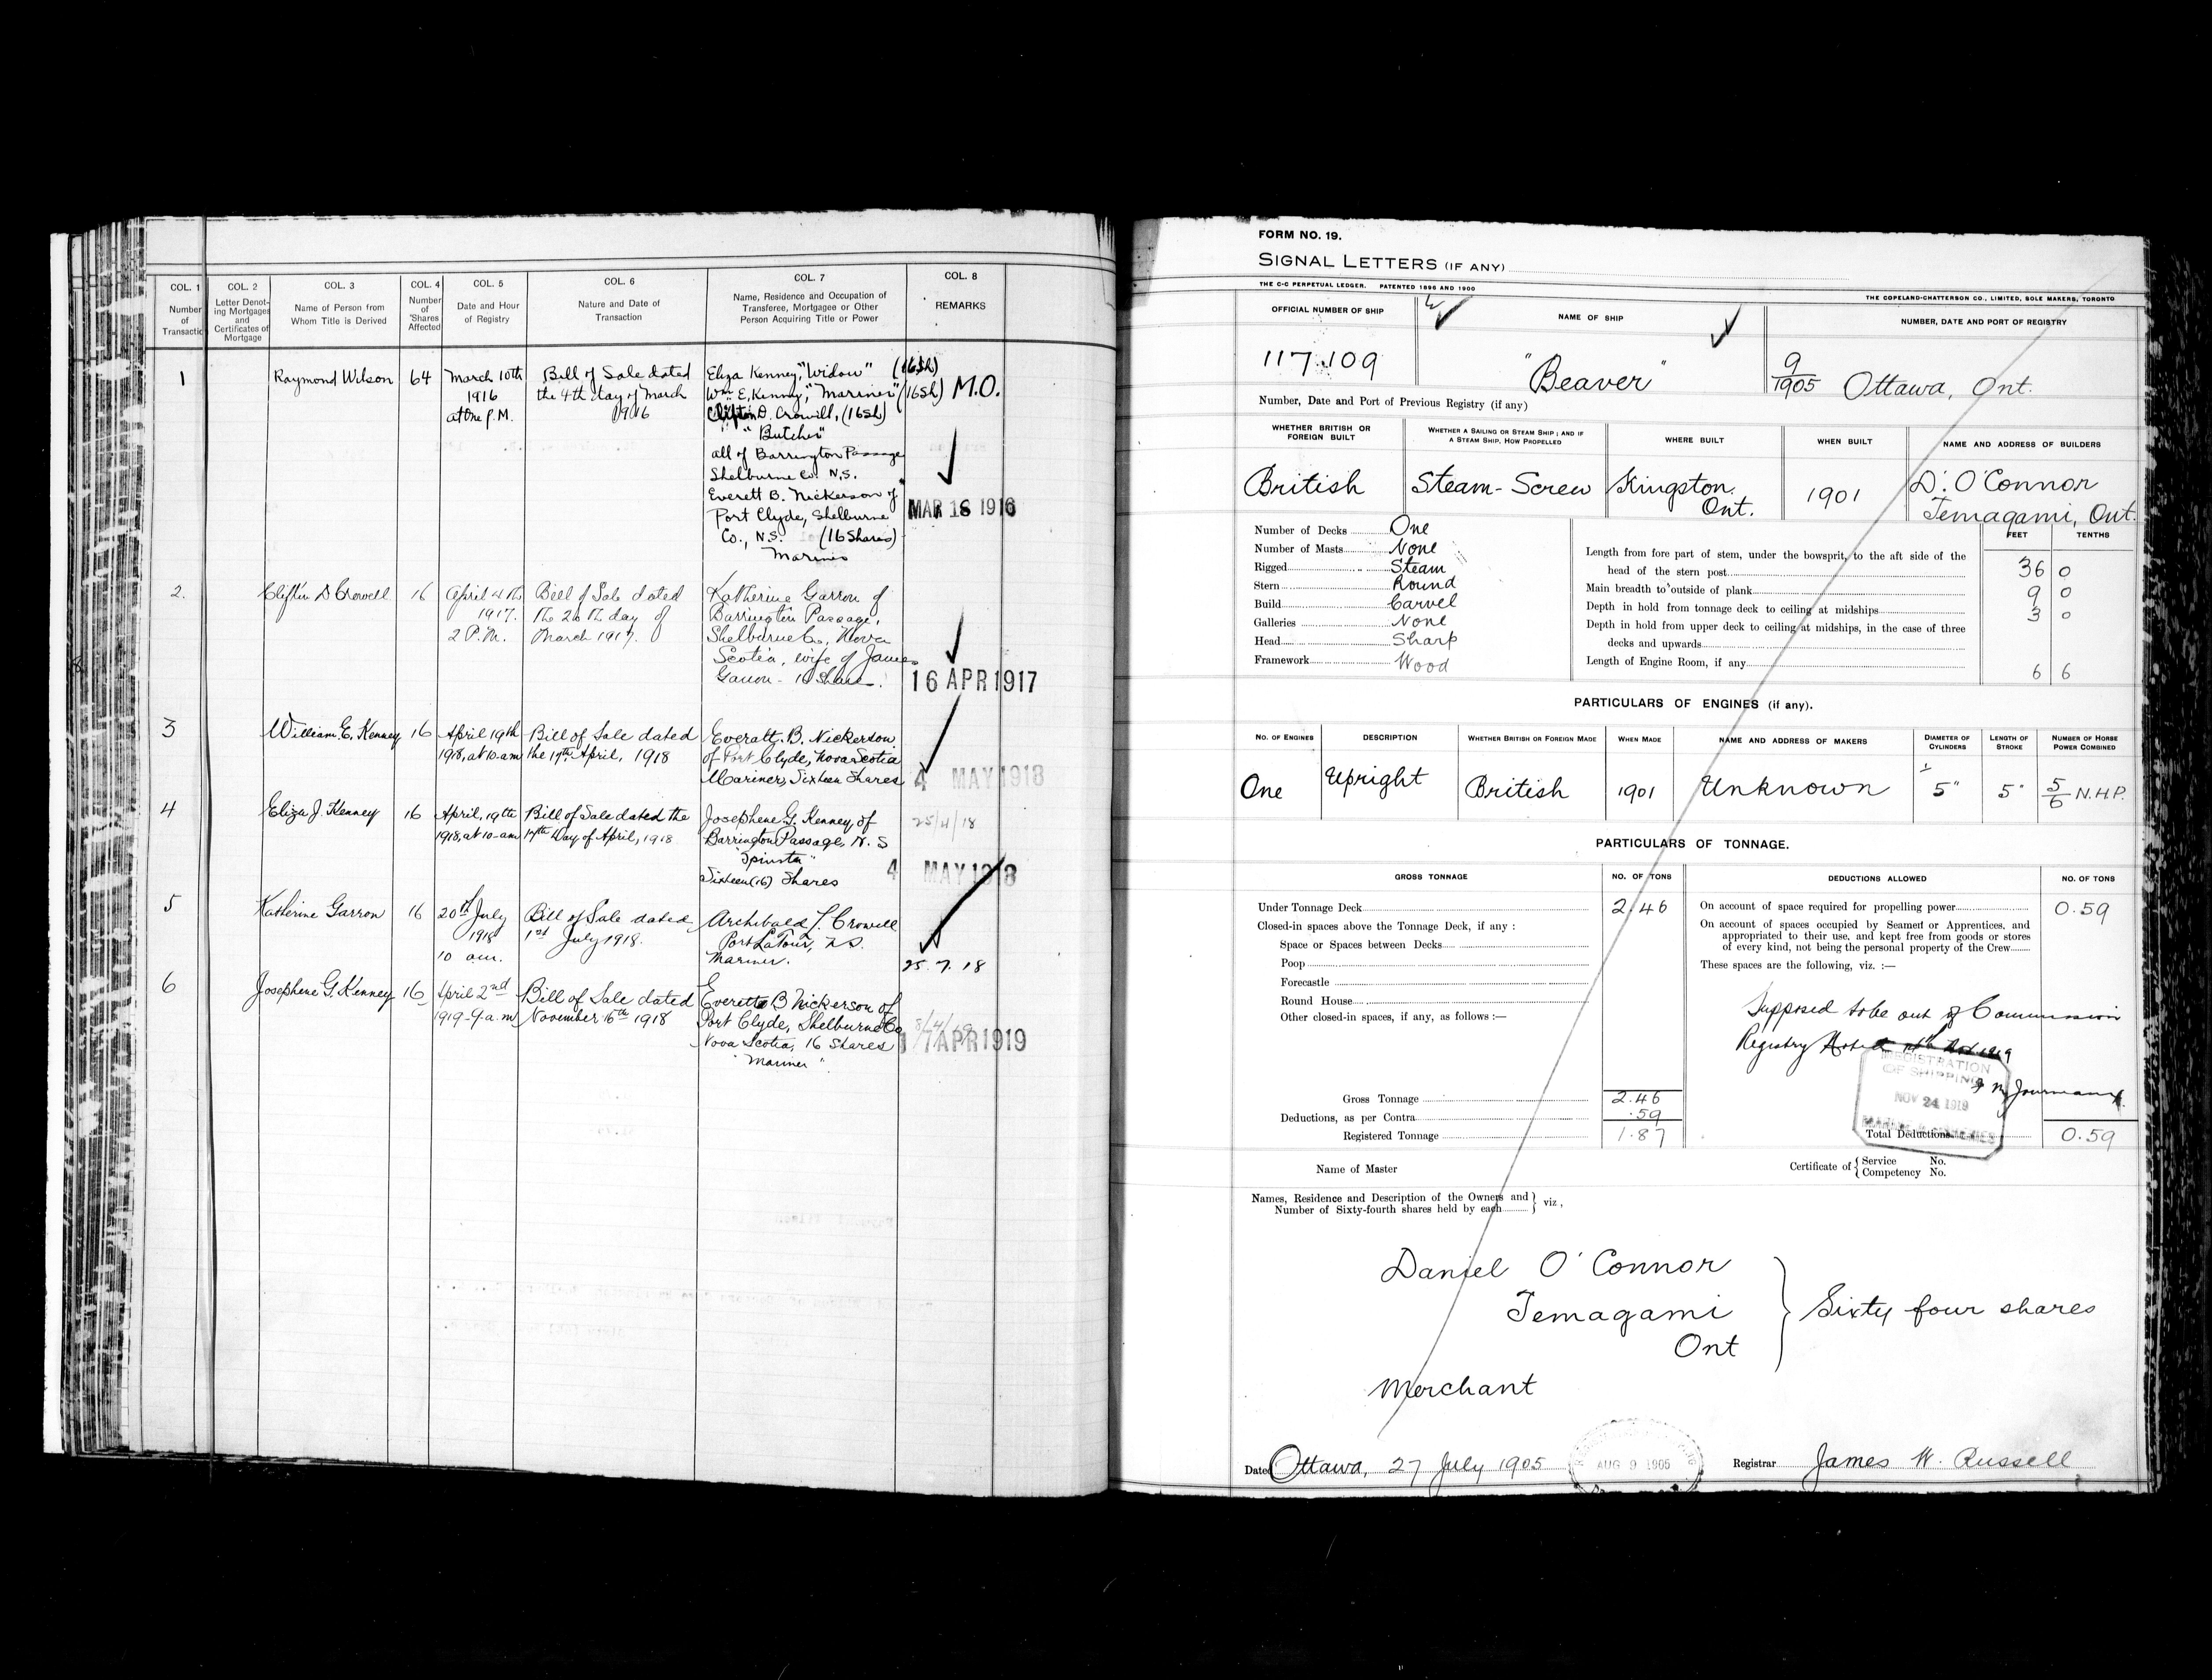 COL. 1
Number
of
Transactio
COL. 2
Letter Denot-
ing Mortgages
and
Certificates of
Mortgage
COL. 3
Name of Person from
Whom Title is Derived
COL. 4
Number
of
Shares
Affected
COL. 5
Date and Hour
of Registry
COL. 6
Nature and Date of
Transaction
COL. 7
Name, Residence and Occupation of
Transferee, Mortgagee or Other
Person Acquiring Title or Power
COL. 8
REMARKS
1
Raymond Wilson
64
March 10th
1916
at One p.M.
Bill of Sale dated
the 4th day of March
1916
Eliza Kenney, "Widow" (16Sh)
Wm E. Kenney, "Mariner" (16Sh)
Clifton D. Crowell, (16Sh)
"Butcher"
all of Barrington Passage
Shelburne Co. N.S.
Everett B. Nickerson of
Port Clyde, Shelburne
Co., N.S. (16 Shares)
Mariner
M.O.
MAR 16 1916
2.
Clifton D Crowell
16
April 4th
1917.
2 P.M.
Bill of Sale dated
the 26th day of
March 1917.
Katherine Garron of
Barrington Passage,
Shelburne Co., Nova
Scotia, wife of James
Garron - 16 Shares.
16 APR 1917
3
William E. Kenney
16
April 19th
1918, at 10-am
Bill of Sale dated
the 17th April, 1918
Everatt. B. Nickerson
of Port Clyde, Nova Scotia
Mariner, Sixteen Shares
4 MAY 1918
4
Eliza J. Kenney
16
April, 19th
1918, at 10-am
Bill of Sale dated the
17th Day of April, 1918
Josephene G. Kenney, of
Barrington Passage, N. S
"Spinster"
Sixteen (16) Shares
25/4/18
4 MAY 1918
5
Katherine Garron
16
20th July
1918
10 am.
Bill of Sale dated
1st July 1918.
Archibald T. Crowell
Port LaTour, N.S.
Mariner.
25. 7. 18
6
Josephene G. Kenney
16
April 2nd
1919-9 a.m
Bill of Sale dated
November 16th 1918
Everette B Nickerson of
Port Clyde, Shelburne Co
Nova Scotia, 16 shares
"Mariner"
8/4/19
17 APR 1919
FORM NO. 19.
SIGNAL LETTERS (IF ANY)
THE C-C PERPETUAL LEDGER. PATENTED 1896 AND 1900
THE COPELAND-CHATTERSON CO., LIMITED, SOLE MAKERS, TORONTO
OFFICIAL NUMBER OF SHIP
NAME OF SHIP
NUMBER, DATE AND PORT OF REGISTRY
117.109
"Beaver"
9/1905 Ottawa, Ont.
Number, Date and Port of Previous Registry (if any)
WHETHER BRITISH OR
FOREIGN BUILT
WHETHER A SAILING OR STEAM SHIP; AND IF
A STEAM SHIP, HOW PROPELLED
WHERE BUILT
WHEN BUILT
NAME AND ADDRESS OF BUILDERS
British
Steam-Screw
Kingston.
Ont.
1901
D. O'Connor
Temagami, Ont.
FEET TENTHS
Number of Decks One
Number of Masts None
Rigged Steam
Stern Round
Build Carvel
Galleries None
Head Sharp
Framework Wood
Length from fore part of stem, under the bowsprit, to the aft side of the
head of the stern post 36 0
Main breadth to outside of plank 9 0
Depth in hold from tonnage deck to ceiling at midships 3 0
Depth in hold from upper deck to ceiling at midships, in the case of three
decks and upwards
Length of Engine Room, if any 6 6
PARTICULARS OF ENGINES (if any).
NO. OF ENGINES
DESCRIPTION
WHETHER BRITISH OR FOREIGN MADE
WHEN MADE
NAME AND ADDRESS OF MAKERS
DIAMETER OF
CYLINDERS
LENGTH OF
STROKE
NUMBER OF HORSE
POWER COMBINED
One
Upright
British
1901
Unknown
5"
5"
5/6 N.H.P.
PARTICULARS OF TONNAGE.
GROSS TONNAGE
NO. OF TONS
DEDUCTIONS ALLOWED
NO. OF TONS
Under Tonnage Deck 2.46
Closed-in spaces above the Tonnage Deck, if any :
Space or Spaces between Decks
Poop
Forecastle
Round House
Other closed-in spaces, if any, as follows :—
Gross Tonnage 2.46
Deductions, as per Contra .59
Registered Tonnage 1.87
On account of space required for propelling power 0.59
On account of spaces occupied by Seamen or Apprentices, and
appropriated to their use, and kept free from goods or stores
of every kind, not being the personal property of the Crew
These spaces are the following, viz. :—
Supposed to be out of Commission
Registry
REGISTRATION
OF SHIPPING
NOV 24 1919
Total Deductions 0.59
Name of Master
Certificate of { Service No.
Competency No.
Names, Residence and Description of the Owners and
Number of Sixty-fourth shares held by each } viz,
Daniel O'Connor
Temagami
Ont
Sixty four shares
Merchant
Dated Ottawa, 27 July 1905
AUG 9 1905
Registrar James W. Russell